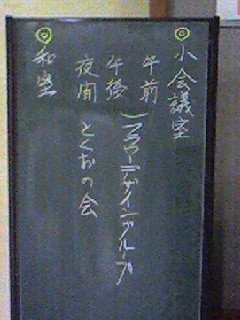 ◎小会議室
午前
午後 フラワーデザイングループ
夜間 とくおの会
◎和室